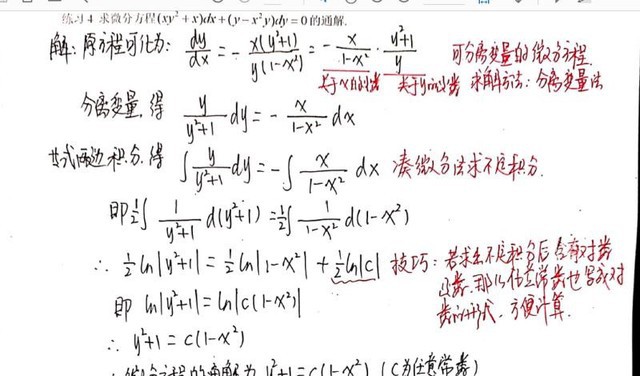 练习4 求微分方程(xy²+x)dx+(y-x²y)dy=0的通解.
解:原方程可化为: dy/dx = - x(y²+1)/y(1-x²) = - x/1-x² · y²+1/y 可分离变量的微分方程.
关于x的函数 关于y的函数 求解方法:分离变量法
分离变量,得 y/y²+1 dy = - x/1-x² dx
两边积分,得 ∫ y/y²+1 dy = -∫ x/1-x² dx 凑微分法求不定积分.
即 ½∫ 1/y²+1 d(y²+1) = ½∫ 1/1-x² d(1-x²)
∴ ½ln|y²+1| = ½ln|1-x²| + ½ln|c| 技巧:若求出不定积分后含有对数
函数,那么任意常数也写成对
即 ln|y²+1| = ln|c(1-x²)| 数的形式,方便计算.
∴ y²+1 = c(1-x²)
∴ 微分方程的通解为 y²+1 = c(1-x²) (C为任意常数)